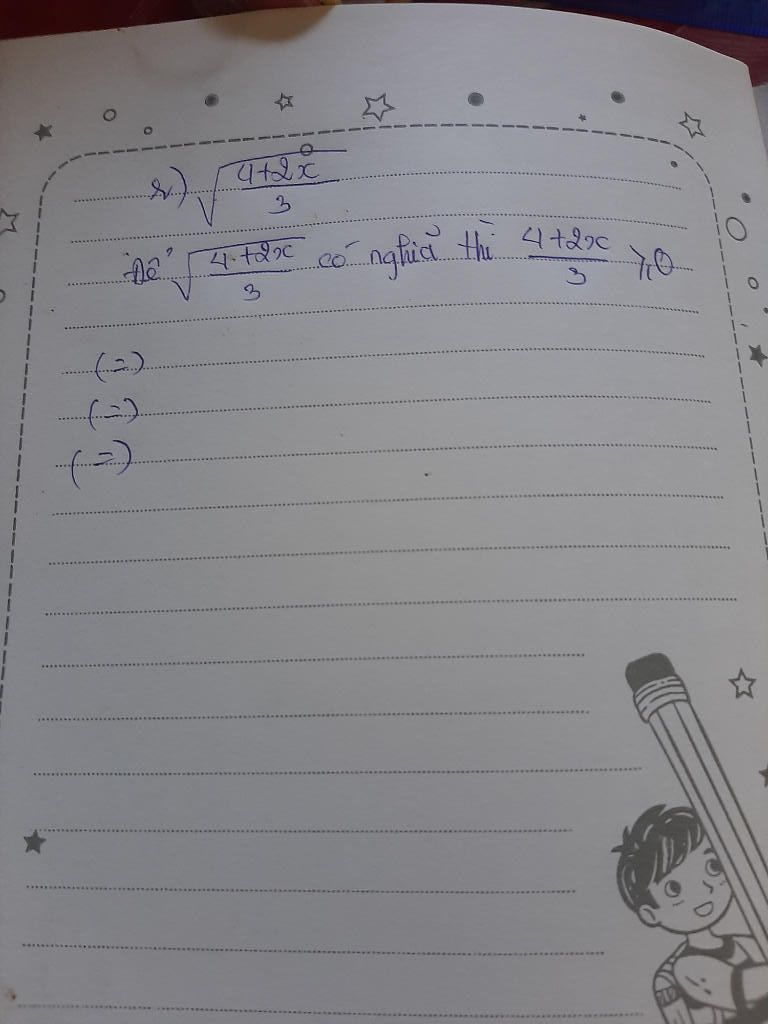 r) √(4+2x)/3
Để √(4+2x)/3 có nghĩa thì (4+2x)/3 ≥ 0
(=)
(=)
(=)